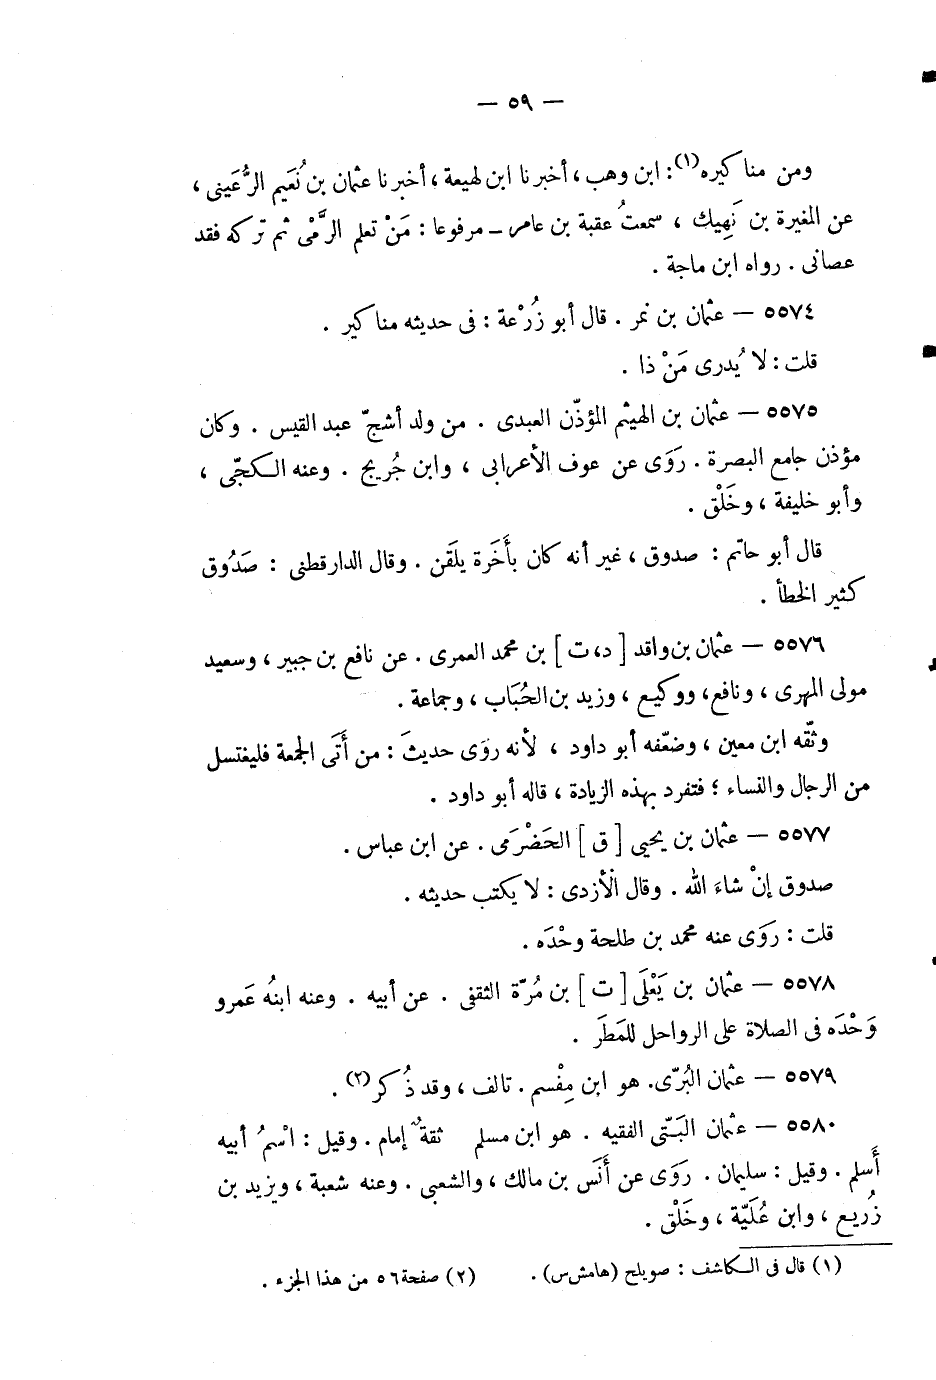 — ٥٩ —
ومن مناكيره(١): ابن وهب، أخبرنا ابن لهيعة، أخبرنا عثمان بن نُعَيم الرُّعَينى،
عن المغيرة بن نَهِيك ، سمعتُ عقبة بن عامر ــ مرفوعا : مَنْ تعلم الرَّمْىَ ثم تركه فقد
عصانى . رواه ابن ماجة .
٥٥٧٤ — عثمان بن نمر . قال أبو زُرْعة : فى حديثه مناكير .
قلت : لا يُدرى مَنْ ذا .
٥٥٧٥ — عثمان بن الهيثم المؤذّن العبدى . من ولد أشجّ عبد القيس . وكان
مؤذن جامع البصرة . رَوَى عن عوف الأعرابى ، وابن جُريج . وعنه الكجّى ،
وأبو خليفة ، وخَلْق .
قال أبو حاتم : صدوق ، غير أنه كان بأَخَرة يلَقن . وقال الدارقطنى : صَدُوق
كثير الخطأ .
٥٥٧٦ — عثمان بن واقد [ د، ت ] بن محمد العمرى . عن نافع بن جبير ، وسعيد
مولى المهرى ، ونافع، ووكيع ، وزيد بن الحُبَاب ، وجماعة .
وثّقه ابن معين ، وضعّفه أبو داود ، لأنه روَى حديثَ : من أَتَى الجمعة فليغتسل
من الرجال والنساء ؛ فتفرد بهذه الزيادة ، قاله أبو داود .
٥٥٧٧ — عثمان بن يحيى [ ق ] الحَضْرَمى . عن ابن عباس .
صدوق إنْ شاءَ الله . وقال الأزدى : لا يكتب حديثه .
قلت : رَوَى عنه محمد بن طلحة وحْدَه .
٥٥٧٨ — عثمان بن يَعْلَى [ ت ] بن مُرّة الثقفى . عن أبيه . وعنه ابنُه عَمرو
وَحْدَه فى الصلاة على الرواحل للمَطَر .
٥٥٧٩ — عثمان البُرّى. هو ابن مِقْسم . تالف ، وقد ذُكر(٢) .
٥٥٨٠ — عثمان البَتّى الفقيه . هو ابن مسلم ثقةٌ إمام . وقيل : اسْمُ أبيه
أَسلم . وقيل : سليمان . رَوَى عن أَنَس بن مالك ، والشعبى . وعنه شعبة ، ويزيد بن
زُريع ، وابن عُلَيّة ، وخَلْق .
(١) قال فى الكاشف : صويلح (هامش س) . (٢) صفحة ٥٦ من هذا الجزء .